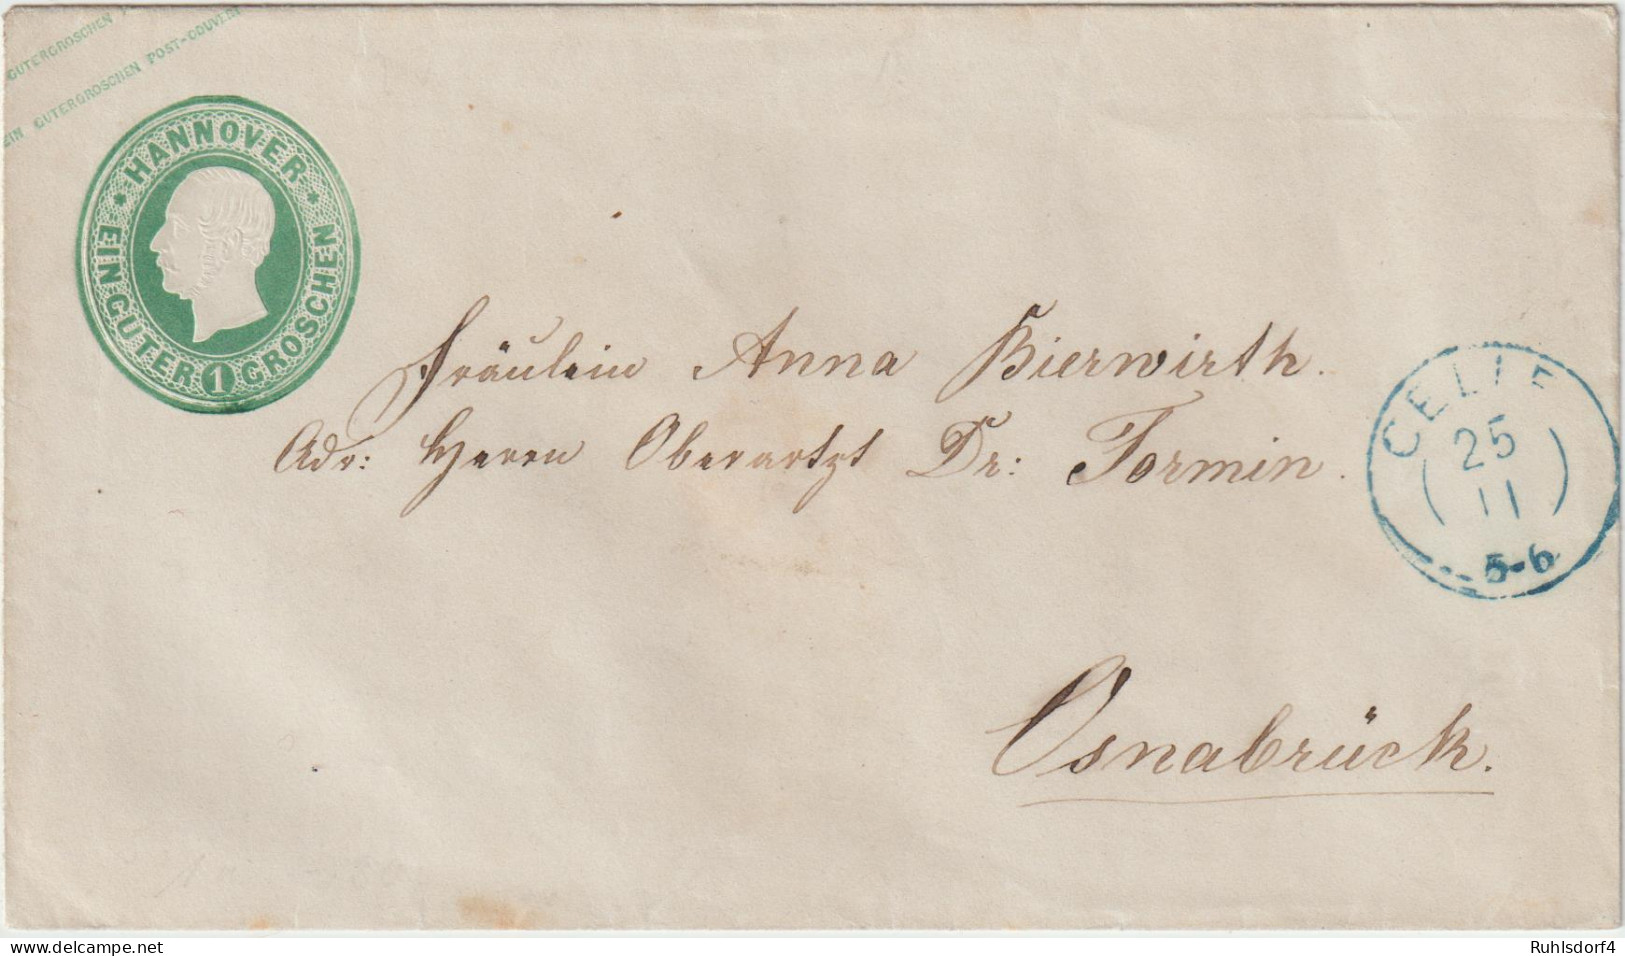 GUTERGROSCHEN
EIN GUTERGROSCHEN POST-COUVERT
* HANNOVER *
EIN GUTER 1 GROSCHEN
Fräulein Anna Bierwirth.
Adr: Herrn Oberartzt Dr: Formin.
CELLE
25
11
5-6
Osnabrück.
www.delcampe.net
Ruhlsdorf4